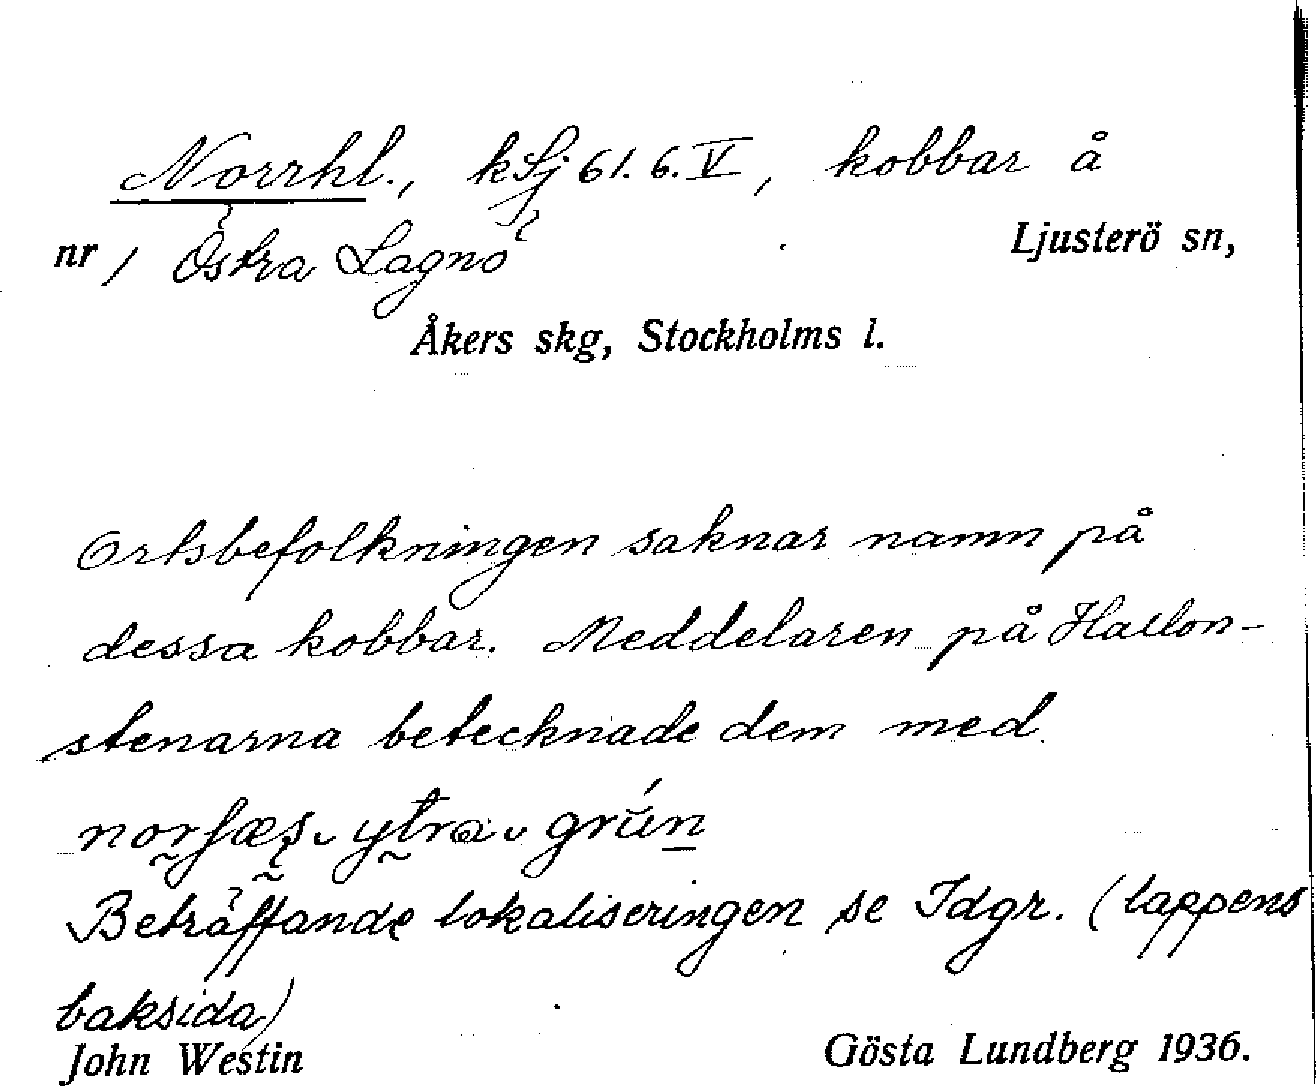 Norrhl., kSj 61. 6. V, kobbar å
nr 1 Östra Lagnö Ljusterö sn,
Åkers skg, Stockholms l.
Ortsbefolkningen saknar namn på
dessa kobbar. Meddelaren på Hallon-
stenarna betecknade dem med
ytra grún
Beträffande lokaliseringen se Idgr. (lappens
baksida)
John Westin Gösta Lundberg 1936.